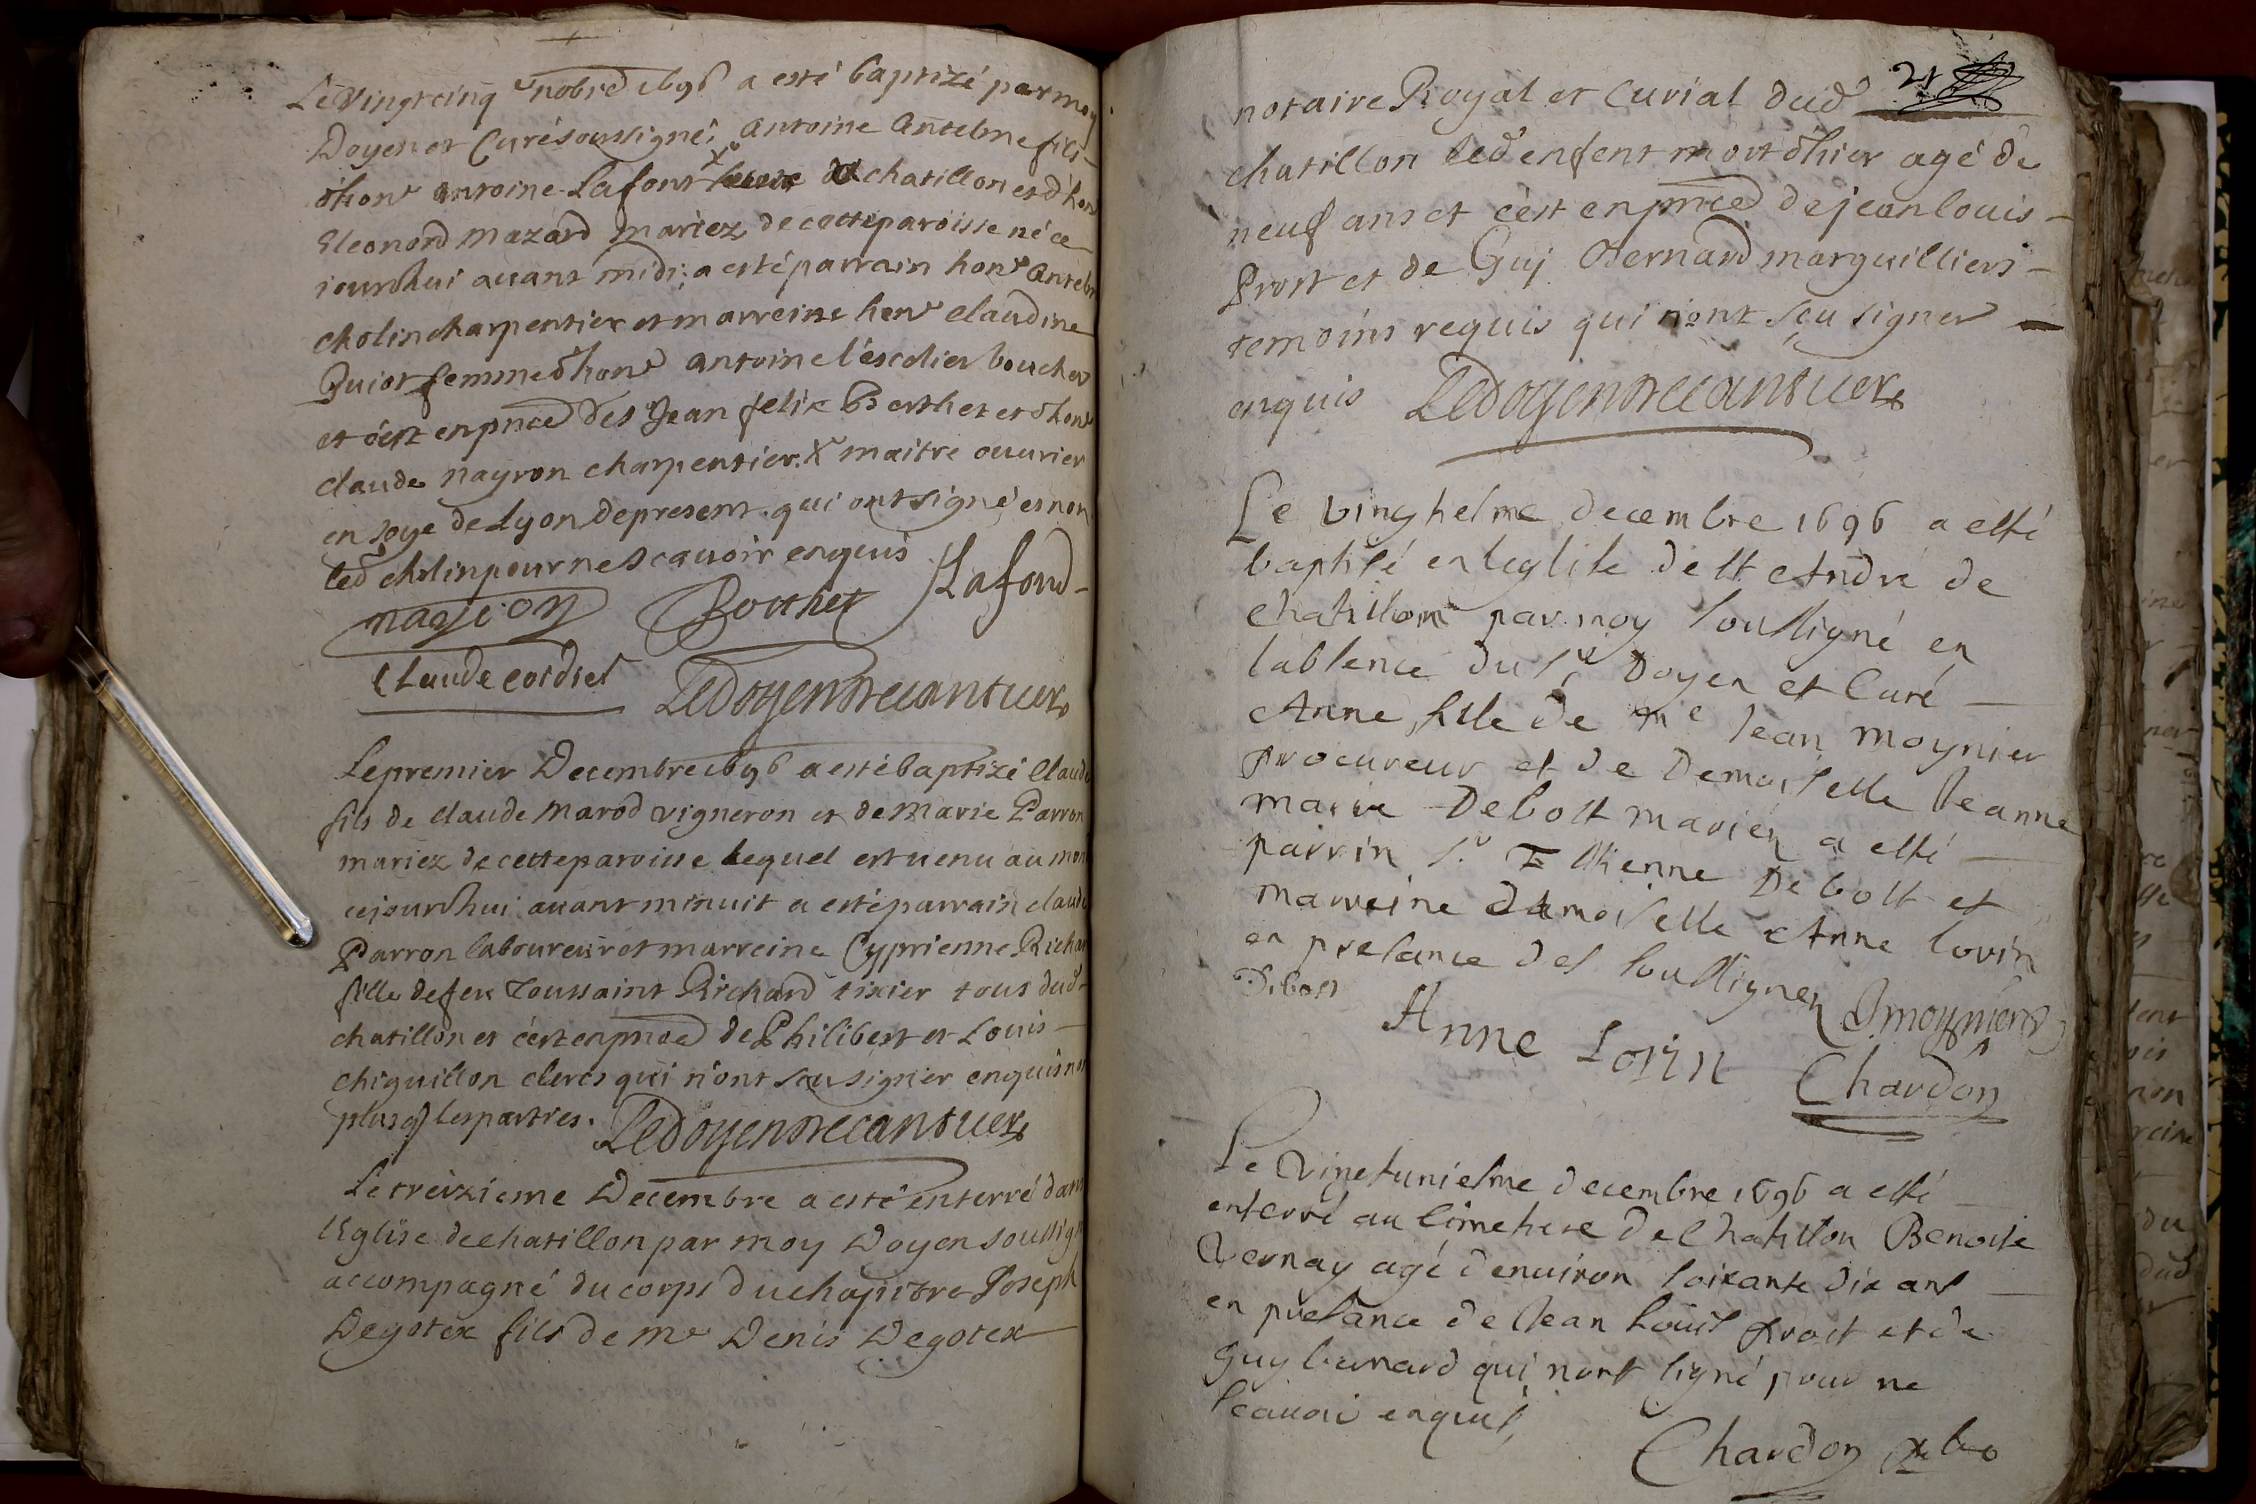 Le vingt cinq nobre 1696 a esté baptizé par moy
Doyen et Curé soussigné, antoine antelme fils
d'hon^e antoine Lafont de chatillon et d'hon
Eleonord mazard mariez de cette paroisse né ce
iourdhui auant midi; a esté parrain hon^e antel
cholin charpentier et marreine hon^e claudine
Guiot femme d'hon^e antoine l'escolier boucher
et c'est en pnce des Jean felix Berthet et d'hon^e
claude nayron charpentier X maitre ouurier
en soye de Lyon de present qui ont signé et non
led cholin pour ne scauoir enquis Lafond
nayron Berthet
Claude cordiet Ledoyen Decantuer
Le premier Decembre 1696 a esté baptizé Claud
fils de claude marod vigneron et de marie Parron
mariez de cette paroisse lequel est uenu au mon
cejourdhui auant minuit a esté parrain claud
Parron laboureur et marreine Cyprienne Richar
fille de feu Toussaint Richard tixier tous dud
chatillon et c'est en pnce de Philibert et Louis
chiquillon clercs qui n'ont sceu signer enquis non
plus q les partres. Ledoyen Decantuer
Le treizieme Decembre a esté enterré dans
l'Eglise de chatillon par moy Doyen soussign
accompagné du corps du chapitre Joseph
Degotex fils de m^e Denis Degotex
21
notaire Royal et Curial dud
chatillon led enfent mort d'hier agé de
neuf ans et c'est en pnce de jean louis
Prost et de Guy Bernard marguilliers
temoins requis qui n'ont sçu signer
enquis Ledoyen Decantuer
Le vinghesme decembre 1696 a esté
baptisé en leglise de st Andre de
chatillon par moy soussigné en
labsence du s^r Doyen et Curé
Anne fille de m^e Jean moynier
procureur et de Demoiselle Jeanne
marie Debost mariez a esté
parrin s^r Estienne Debost et
marreine damoiselle Anne lorin
en presance des soussignez Jmoynier
Debost
Anne Lorin Chardon
Le Vingtuniesme decembre 1696 a esté
enterré au cimetiere de chatillon Benoite
Vernay agé denuiron soixante dix ans
en presance de Jean Louis prost et de
Guy bernard qui nont signé pour ne
scauoi enquis,
Chardon